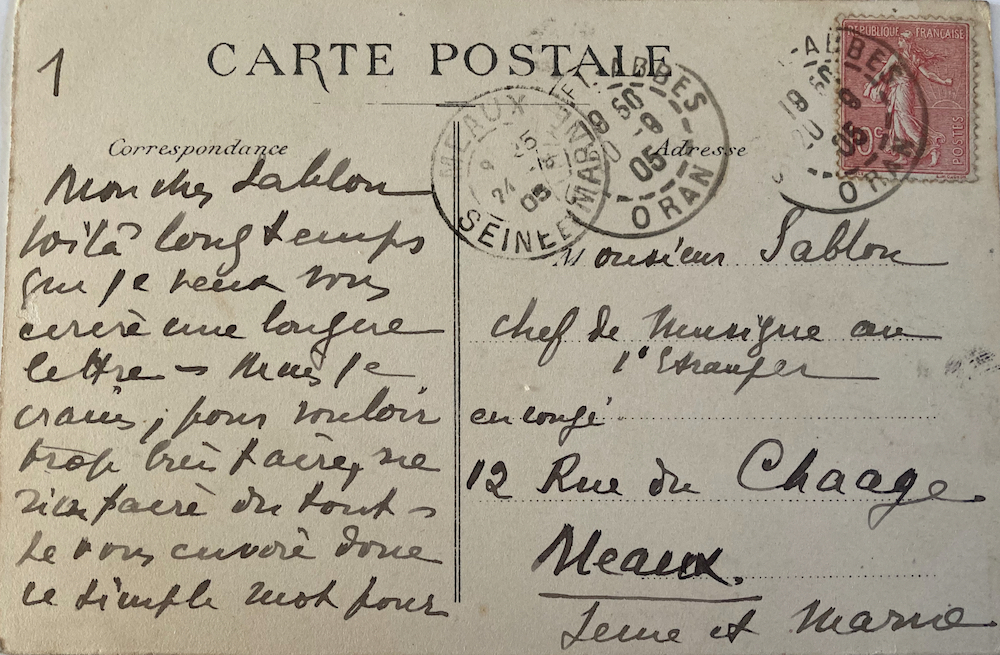 1
CARTE POSTALE
Correspondance
Adresse
RÉPUBLIQUE FRANÇAISE
POSTES
MEAUX
24 -9 05
SEINE ET MARNE
ABBES
20 9 05
ORAN
ABBES
20 9 05
ORAN
Mon cher Sablon
Voilà longtemps
que je veux vous
ecrire une longue
lettre - Mais je
crains, pour vouloir
trop bien faire, ne
rien faire du tout -
Je vous envoie donc
ce simple mot pour
Monsieur Sablon
Chef de Musique au
1er Etranger
en congé
12 Rue du Chaage
Meaux.
Seine et Marne